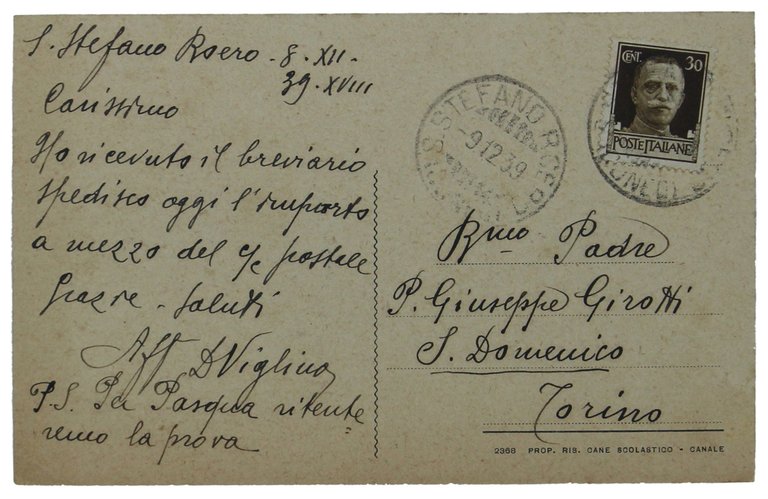 S. Stefano Roero - 8 - XII -
39 - XVIII
Carissimo
Ho ricevuto il breviario
spedisco oggi l'importo
a mezzo del c/c postale
Grazie - Saluti
Aff D Viglino
P.S. Per Pasqua ritente
remo la prova
S. STEFANO ROERO
-9.12.39
CENT. 30
POSTE ITALIANE
Rmo Padre
P. Giuseppe Girotti
S. Domenico
Torino
2368 PROP. RIS. CANE SCOLASTICO - CANALE